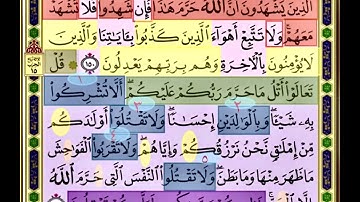 الَّذِينَ يَشْهَدُونَ أَنَّ اللَّهَ حَرَّمَ هَٰذَا ۖ فَإِن شَهِدُوا۟ فَلَا تَشْهَدْ
مَعَهُمْ ۚ وَلَا تَتَّبِعْ أَهْوَآءَ الَّذِينَ كَذَّبُوا۟ بِـَٔايَٰتِنَا وَالَّذِينَ
لَا يُؤْمِنُونَ بِالْـَٔاخِرَةِ وَهُم بِرَبِّهِمْ يَعْدِلُونَ ١٥٠ ۞ قُلْ
تَعَالَوْا۟ أَتْلُ مَا حَرَّمَ رَبُّكُمْ عَلَيْكُمْ ۖ أَلَّا تُشْرِكُوا۟
بِهِۦ شَيْـًٔا ۖ وَبِالْوَٰلِدَيْنِ إِحْسَٰنًا ۖ وَلَا تَقْتُلُوٓا۟ أَوْلَٰدَكُم
مِّنْ إِمْلَٰقٍ ۖ نَّحْنُ نَرْزُقُكُمْ وَإِيَّاهُمْ ۖ وَلَا تَقْرَبُوا۟ الْفَوَٰحِشَ
مَا ظَهَرَ مِنْهَا وَمَا بَطَنَ ۖ وَلَا تَقْتُلُوا۟ النَّفْسَ الَّتِى حَرَّمَ اللَّهُ